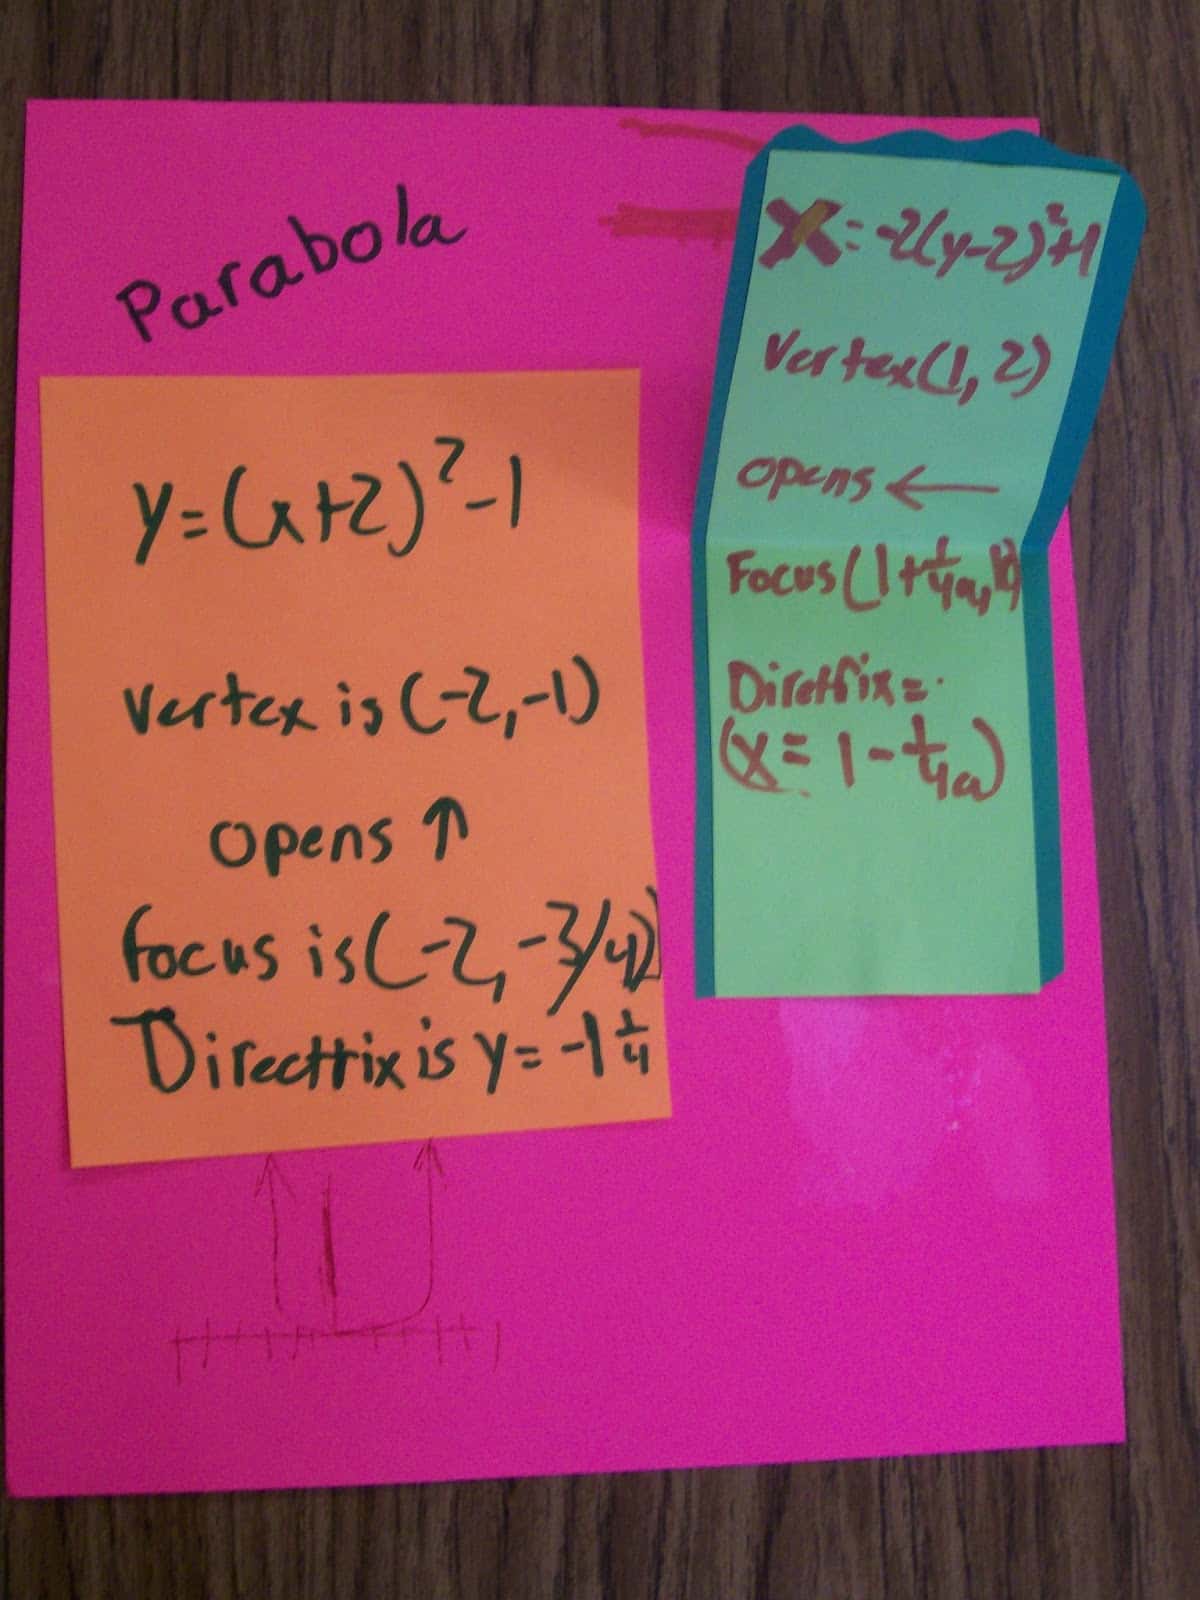 Parabola
y=(x+2)²-1
Vertex is (-2,-1)
opens ↑
focus is (-2, -3/4)
Directtrix is y= -1 1/4
X=-2(y-2)²+1
Vertex(1, 2)
opens ←
Focus (1+1/4a,
Diretrix=
(x= 1-1/4a)